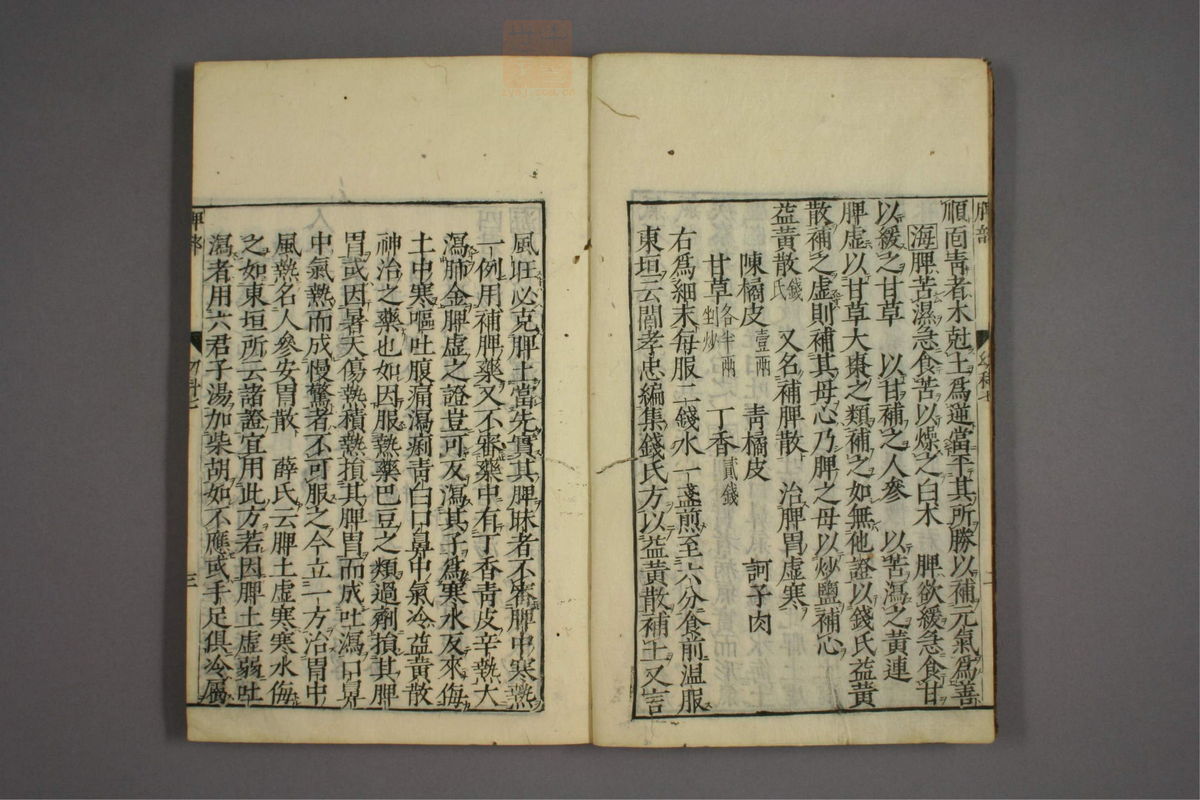 順面靑者木尅土爲逆當至其所勝以補元氣爲善
海脾苦濕急食苦以燥之白术　脾欲緩急食甘
以緩之甘草　以甘補之人參　以苦瀉之黃連
脾虛以甘草大棗之類補之如無他證以錢氏益黃
散補之虛則補其母心乃脾之母以炒鹽補心
益黃散錢氏　又名補脾散　治脾胃虛寒
陳橘皮壹兩　靑橘皮　訶子肉
甘草各半兩剉炒　丁香貳錢
右爲細末每服二錢水一盞煎至六分食前溫服
東垣云閻孝忠編集錢氏方以益黃散補土又言
風旺必克脾土當先實其脾昧者不審脾中寒熱
一例用補脾藥又不審藥中有丁香靑皮辛熱大
瀉肺金脾虛之證豈可反瀉其子爲寒水反來侮
土中寒嘔吐腹痛瀉痢靑白口鼻中氣冷益黃散
神治之藥也如因服熱藥巴豆之類過劑損其脾
胃或因暑天傷熱積熱損其脾胃而成吐瀉口鼻
中氣熱而成慢驚者不可服之今立一方治胃中
風熱名人參安胃散　薛氏云脾土虛寒寒水侮
之如東垣所云諸證宜用此方若因脾土虛弱吐
瀉者用六君子湯加柴胡如不應或手足俱冷屬
三